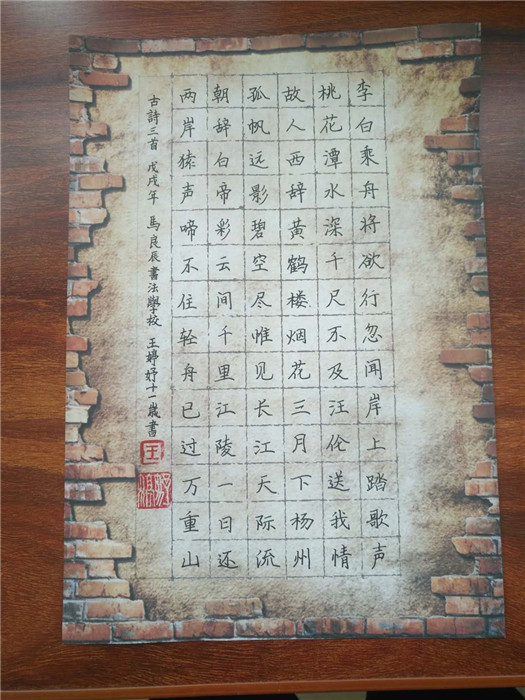 李白乘舟将欲行忽闻岸上踏歌声
桃花潭水深千尺不及汪伦送我情
故人西辞黄鹤楼烟花三月下杨州
孤帆远影碧空尽惟见长江天际流
朝辞白帝彩云间千里江陵一日还
两岸猿声啼不住轻舟已过万重山
古詩三首 戊戌年 馬良辰書法學校 王婷妤十一歲書
王